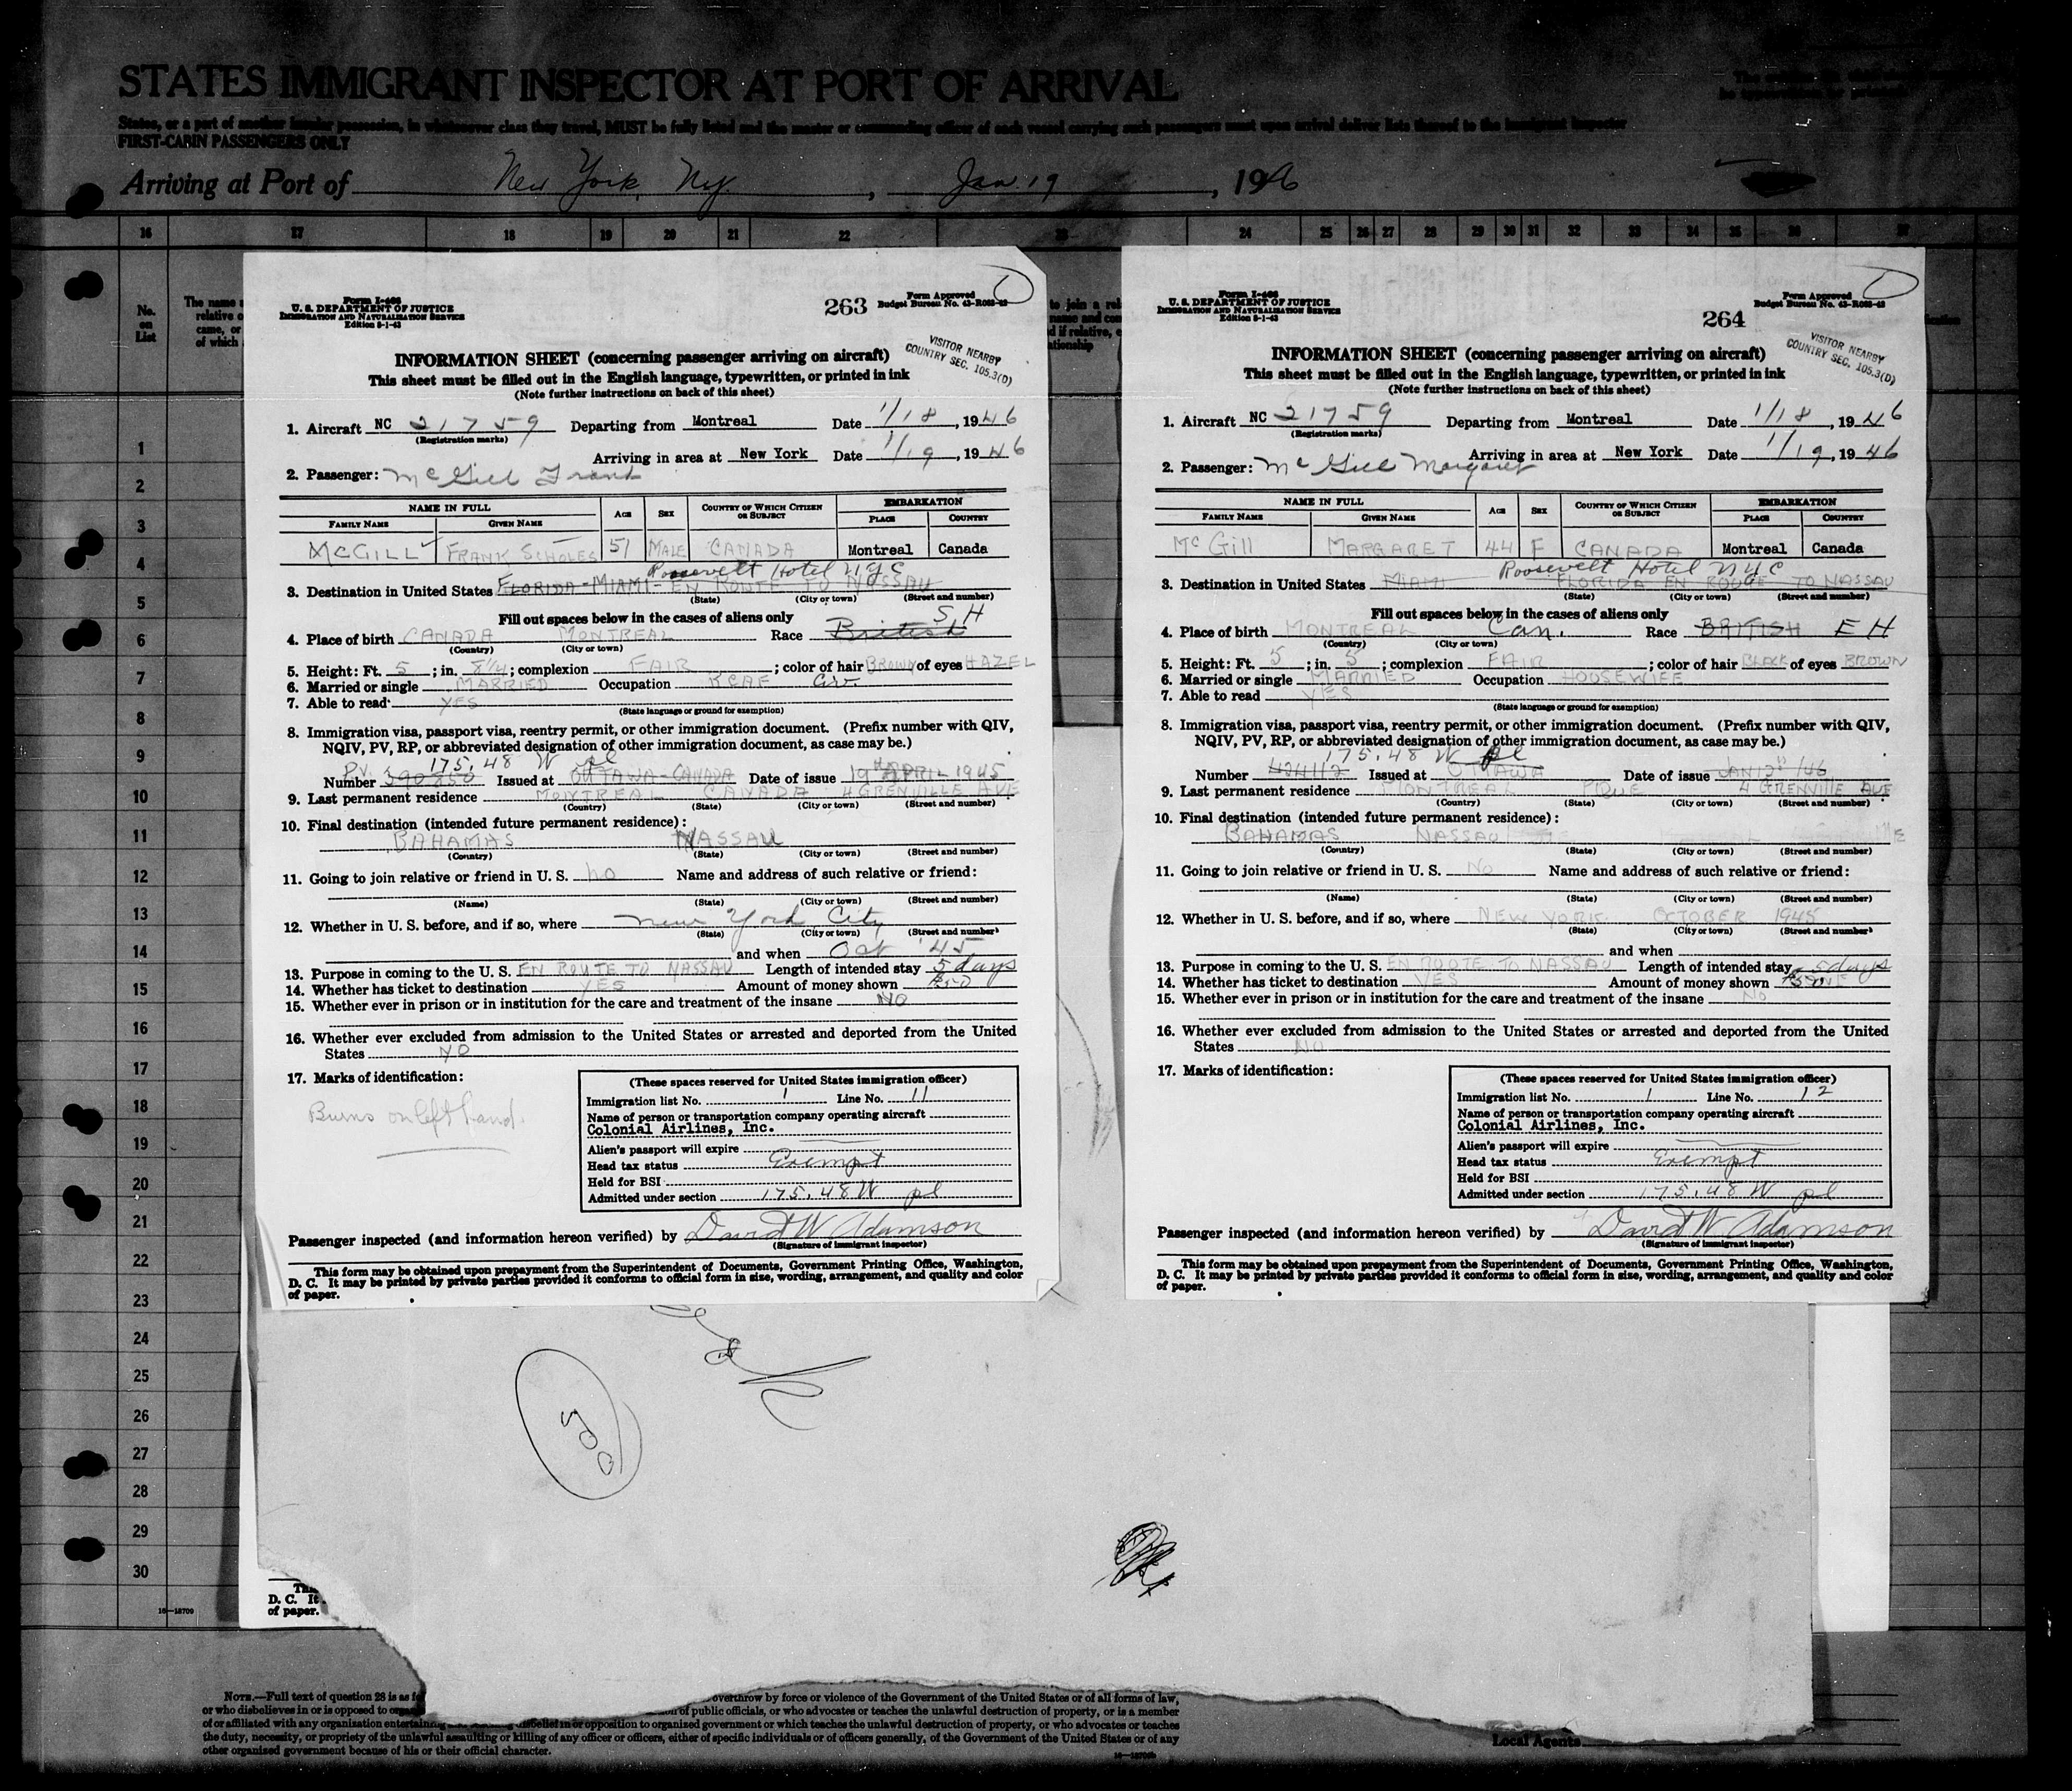 STATES IMMIGRANT INSPECTOR AT PORT OF ARRIVAL
States, or a part of another insular possession, in whatsoever class they travel, MUST be fully listed and the master or commanding officer of each vessel carrying such passengers must upon arrival deliver lists thereof to the immigrant inspector
FIRST-CABIN PASSENGERS ONLY
Arriving at Port of New York, N.Y. , Jan. 19 , 1946
16 17 18 19 20 21 22 23 24 25 26 27 28 29 30 31 32 33 34 35 36 37
No. on List
The name
relative o
came, or
of which
1
2
3
4
5
6
7
8
9
10
11
12
13
14
15
16
17
18
19
20
21
22
23
24
25
26
27
28
29
30
Form I-466
U. S. DEPARTMENT OF JUSTICE
IMMIGRATION AND NATURALIZATION SERVICE
Edition 5-1-43
263
Form Approved
Budget Bureau No. 43-R082-42
VISITOR NEARBY
COUNTRY SEC. 105.3(D)
INFORMATION SHEET (concerning passenger arriving on aircraft)
This sheet must be filled out in the English language, typewritten, or printed in ink
(Note further instructions on back of this sheet)
1. Aircraft NC 21759 Departing from Montreal Date 1/18, 1946
(Registration marks)
Arriving in area at New York Date 1/19, 1946
2. Passenger: McGill Frank
NAME IN FULL AGE SEX COUNTRY OF WHICH CITIZEN OR SUBJECT EMBARKATION
FAMILY NAME GIVEN NAME PLACE COUNTRY
McGILL FRANK SCHOLES 51 MALE CANADA Montreal Canada
Roosevelt Hotel NYC
3. Destination in United States FLORIDA-MIAMI-EN ROUTE TO NASSAU
(State) (City or town) (Street and number)
Fill out spaces below in the cases of aliens only
S H
4. Place of birth CANADA MONTREAL Race British
(Country) (City or town)
5. Height: Ft. 5; in. 8 1/4; complexion FAIR; color of hair BROWN of eyes HAZEL
6. Married or single MARRIED Occupation RCAF Gov.
7. Able to read YES
(State language or ground for exemption)
8. Immigration visa, passport visa, reentry permit, or other immigration document. (Prefix number with QIV,
NQIV, PV, RP, or abbreviated designation of other immigration document, as case may be.)
PV. 175.48 W pl
Number 390850 Issued at OTTAWA-CANADA Date of issue 19TH APRIL 1945
9. Last permanent residence MONTREAL CANADA 4 GRENVILLE AVE
(Country) (State) (City or town) (Street and number)
10. Final destination (intended future permanent residence):
BAHAMAS NASSAU
(Country) (State) (City or town) (Street and number)
11. Going to join relative or friend in U. S. no Name and address of such relative or friend:
(Name) (State) (City or town) (Street and number)
12. Whether in U. S. before, and if so, where New York City
(State) (City or town) (Street and number)
and when Oct '45
13. Purpose in coming to the U. S. EN ROUTE TO NASSAU Length of intended stay 5 days
14. Whether has ticket to destination YES Amount of money shown $50
15. Whether ever in prison or in institution for the care and treatment of the insane NO
16. Whether ever excluded from admission to the United States or arrested and deported from the United
States NO
17. Marks of identification:
Burns on left hand.
(These spaces reserved for United States immigration officer)
Immigration list No. 1 Line No. 11
Name of person or transportation company operating aircraft
Colonial Airlines, Inc.
Alien's passport will expire
Head tax status Exempt
Held for BSI
Admitted under section 175.48 W pl
Passenger inspected (and information hereon verified) by David W Adamson
(Signature of immigrant inspector)
This form may be obtained upon prepayment from the Superintendent of Documents, Government Printing Office, Washington,
D. C. It may be printed by private parties provided it conforms to official form in size, wording, arrangement, and quality and color
of paper.
Form I-466
U. S. DEPARTMENT OF JUSTICE
IMMIGRATION AND NATURALIZATION SERVICE
Edition 5-1-43
264
Form Approved
Budget Bureau No. 43-R082-42
VISITOR NEARBY
COUNTRY SEC. 105.3(D)
INFORMATION SHEET (concerning passenger arriving on aircraft)
This sheet must be filled out in the English language, typewritten, or printed in ink
(Note further instructions on back of this sheet)
1. Aircraft NC 21759 Departing from Montreal Date 1/18, 1946
(Registration marks)
Arriving in area at New York Date 1/19, 1946
2. Passenger: McGill Margaret
NAME IN FULL AGE SEX COUNTRY OF WHICH CITIZEN OR SUBJECT EMBARKATION
FAMILY NAME GIVEN NAME PLACE COUNTRY
McGill MARGARET 44 F CANADA Montreal Canada
Roosevelt Hotel NYC
3. Destination in United States MIAMI FLORIDA EN ROUTE TO NASSAU
(State) (City or town) (Street and number)
Fill out spaces below in the cases of aliens only
4. Place of birth MONTREAL Can. Race BRITISH E H
(Country) (City or town)
5. Height: Ft. 5; in. 5; complexion FAIR; color of hair BLACK of eyes BROWN
6. Married or single MARRIED Occupation HOUSEWIFE
7. Able to read YES
(State language or ground for exemption)
8. Immigration visa, passport visa, reentry permit, or other immigration document. (Prefix number with QIV,
NQIV, PV, RP, or abbreviated designation of other immigration document, as case may be.)
175.48 W pl
Number 424112 Issued at OTTAWA Date of issue JAN 12TH /46
9. Last permanent residence MONTREAL PQUE 4 GRENVILLE AVE
(Country) (State) (City or town) (Street and number)
10. Final destination (intended future permanent residence):
BAHAMAS NASSAU
(Country) (State) (City or town) (Street and number)
11. Going to join relative or friend in U. S. No Name and address of such relative or friend:
(Name) (State) (City or town) (Street and number)
12. Whether in U. S. before, and if so, where NEW YORK OCTOBER 1945
(State) (City or town) (Street and number)
and when
13. Purpose in coming to the U. S. EN ROUTE TO NASSAU Length of intended stay 5 days
14. Whether has ticket to destination YES Amount of money shown $50
15. Whether ever in prison or in institution for the care and treatment of the insane No
16. Whether ever excluded from admission to the United States or arrested and deported from the United
States NO
17. Marks of identification:
(These spaces reserved for United States immigration officer)
Immigration list No. 1 Line No. 12
Name of person or transportation company operating aircraft
Colonial Airlines, Inc.
Alien's passport will expire
Head tax status Exempt
Held for BSI
Admitted under section 175.48 W pl
Passenger inspected (and information hereon verified) by David W Adamson
(Signature of immigrant inspector)
This form may be obtained upon prepayment from the Superintendent of Documents, Government Printing Office, Washington,
D. C. It may be printed by private parties provided it conforms to official form in size, wording, arrangement, and quality and color
of paper.
D. C. It
of paper.
16—18709
NOTE.—Full text of question 28 is as
or who disbelieves in or is opposed to overthrow by force or violence of the Government of the United States or of all forms of law,
of public officials, or who advocates or teaches the unlawful destruction of property, or is a member
of or affiliated with any organization entertaining disbelief in or opposition to organized government or which teaches the unlawful destruction of property, or who advocates or teaches
the duty, necessity, or propriety of the unlawful assaulting or killing of any officer or officers, either of specific individuals or of officers generally, of the Government of the United States or of any
other organized government because of his or their official character.
Local Agents